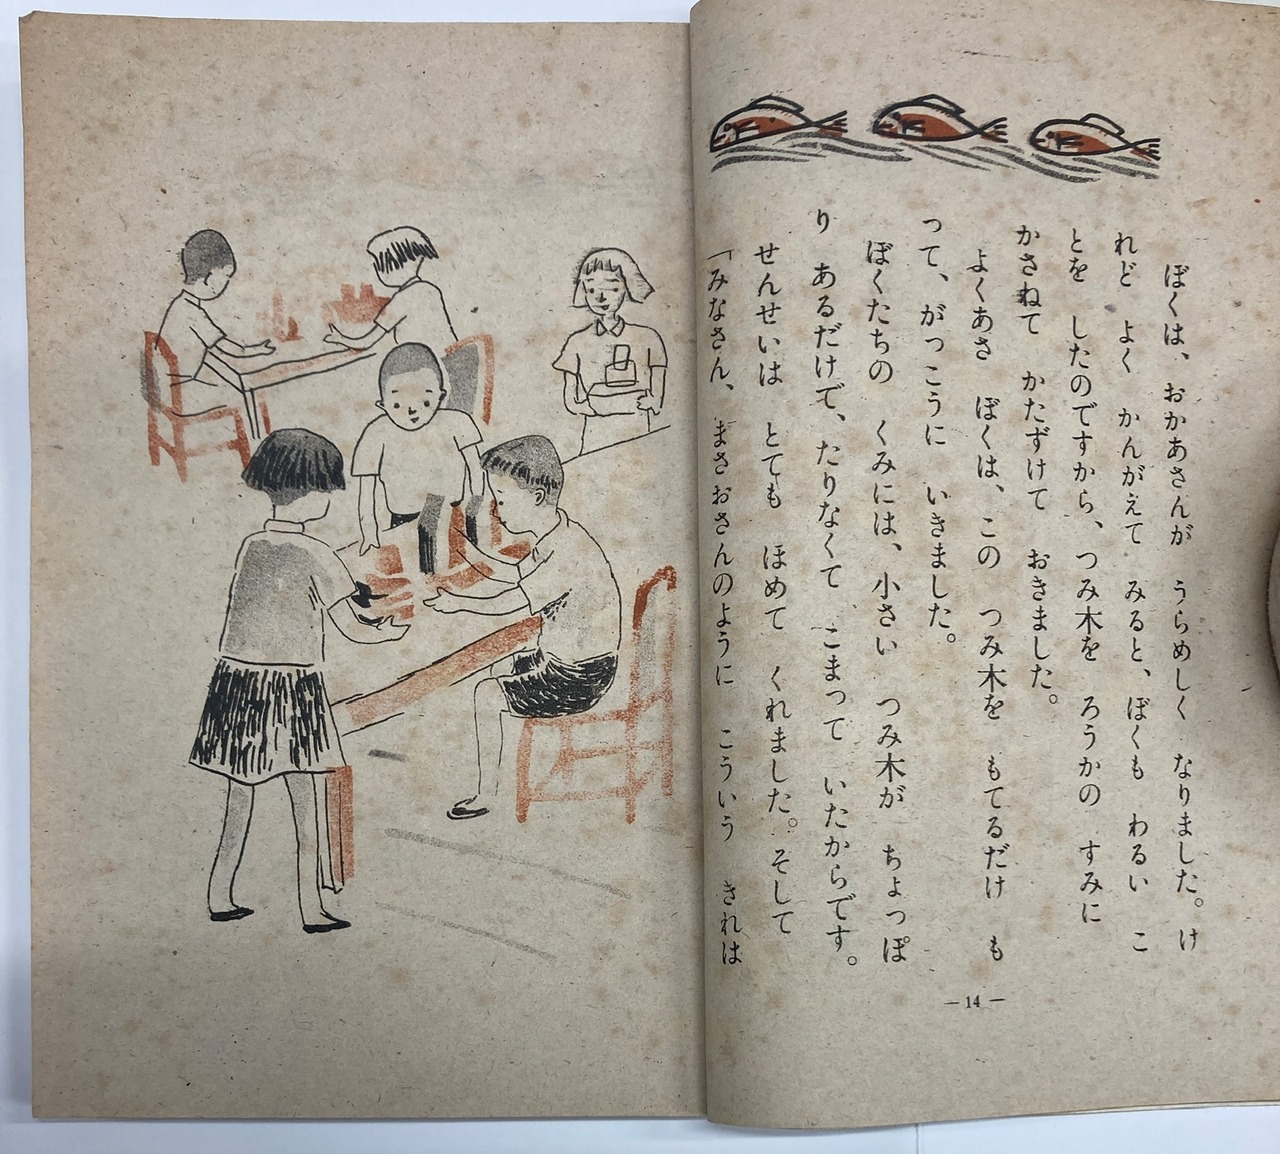 ぼくは、おかあさんが うらめしく なりました。け
れど よく かんがえて みると、ぼくも わるい こ
とを したのですから、つみ木を ろうかの すみに
かさねて かたずけて おきました。
よくあさ ぼくは、この つみ木を もてるだけ も
って、がっこうに いきました。
ぼくたちの くみには、小さい つみ木が ちょっぽ
り あるだけで、たりなくて こまって いたからです。
せんせいは とても ほめて くれました。そして
「みなさん、まさおさんのように こういう きれは
— 14 —